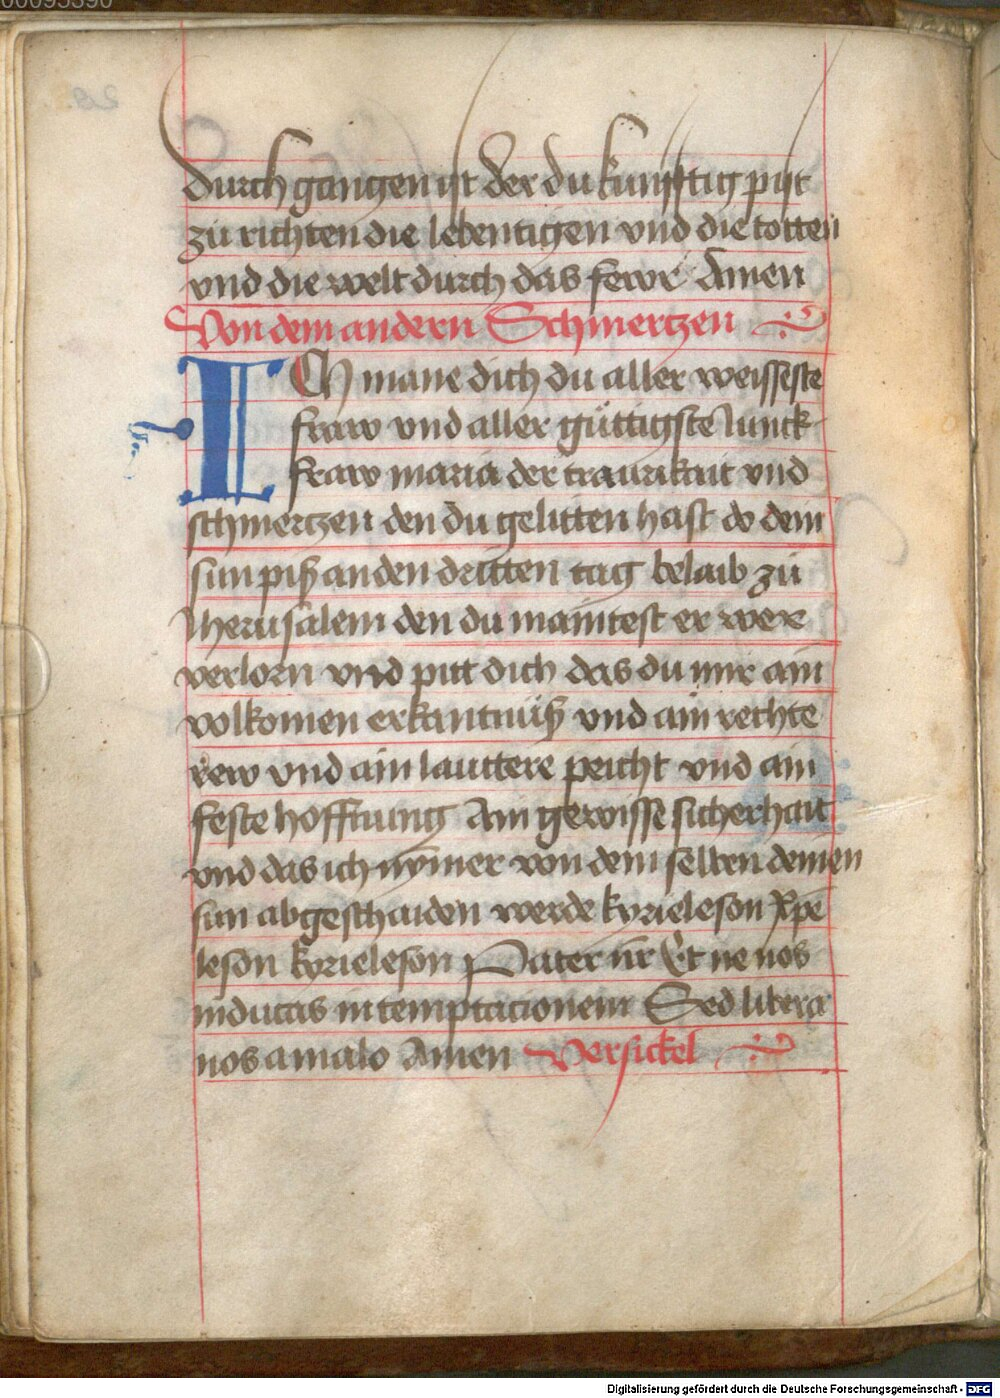 00095390
durch gangen ist der du kunfftig pist
zů richten die lebentigen vnd die totten
vnd die welt durch das fewr Amen
Von dem andern Schmertzen
ICh mane dich du aller weisseste
fraw vnd aller gůttigste Junck
fraw maria der traurikait vnd
schmertzen den du gelitten hast do dein
sun piß an den dritten tag belaib zů
Jherusalem den du maintest er wer
verlorn vnd pitt dich das du mir ain
volkomen erkantnuß vnd ain rechte
rew vnd ain lauttere peicht vnd ain
feste hoffnung Ain gewisse sicherhait
vnd das ich nymer von dem selben deinen
sun abgeschaiden werde kyrieleson Xpe
leson kyrieleson Pater nr̄ Et ne nos
inducas in temptacionem Sed libera
nos a malo Amen Versickel
Digitalisierung gefördert durch die Deutsche Forschungsgemeinschaft - DFG